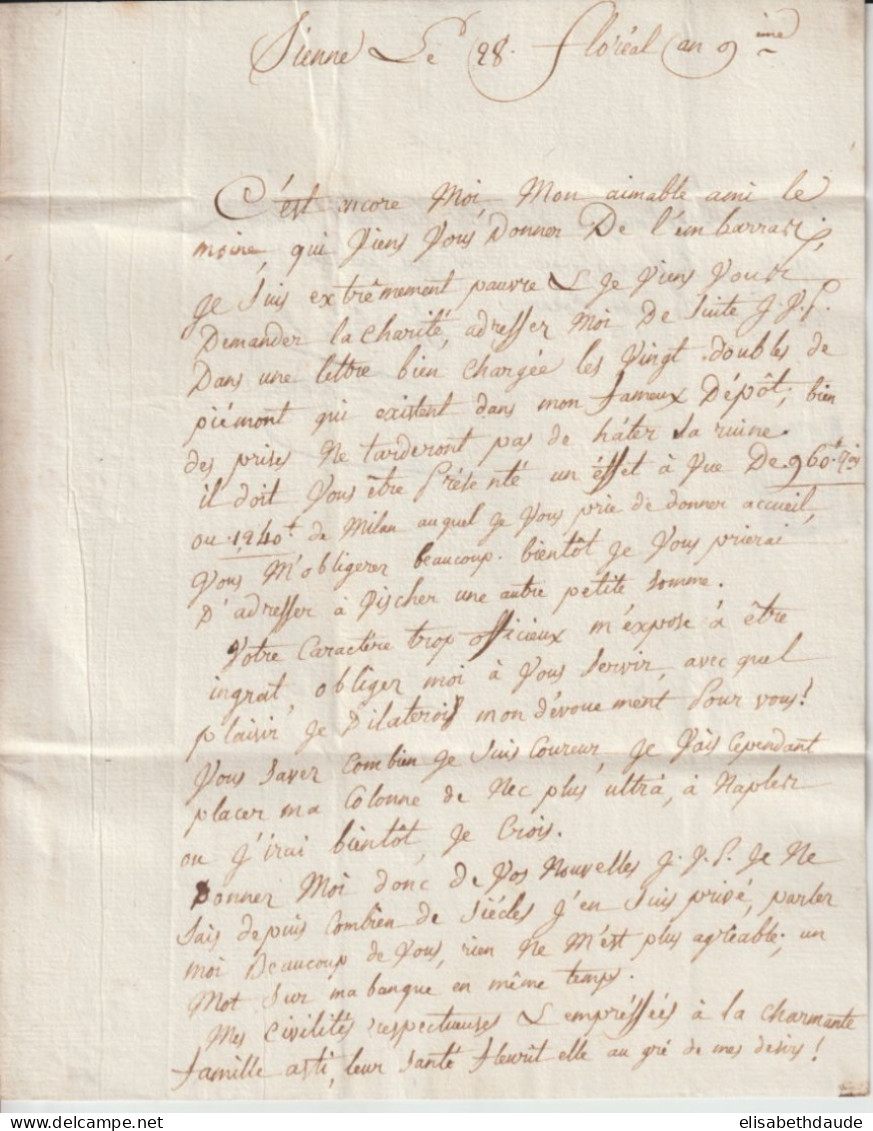 Sienne Le 28. floréal an 9 ime
C'est encore Moi, Mon aimable ami le
moine, qui Viens Vous Donner De l'embarras;
Je Suis extrêmement pauvre & Je Viens Vous
Demander la charité, adresser Moi De Suite J. V. P.
Dans une lettre bien chargée les Vingt doubles de
piémont qui existent dans mon fameux Dépôt; bien
des prises Ne tarderont pas de hâter sa ruine.
il doit Vous être Présenté un éffet à Vue De 960.
ou 1240 de Milan auquel Je Vous prie de donner accueil,
Vous M'obligerer beaucoup. bientôt Je Vous prierai
D'adresser à Vischer une autre petite somme.
Votre Caractère trop officieux m'expose à être
ingrat, obliger moi à Vous Servir, avec quel
plaisir Je Dilaterois mon dévouement Pour vous!
Vous Saver Combien Je Suis Coureur, Je Vais Cependant
placer ma Colonne de Nec plus ultrà, à Naples
ou J'irai bientôt, Je Crois.
Donner Moi donc de Vos Nouvelles J. V. P. Je Ne
Sais depuis Combien de Siécles J'en Suis privé, parler
moi Beaucoup de Vous, rien Ne M'est plus agréable; un
Mot Sur ma banque en même temps.
Mes Civilités respectueuses & empréssées à la charmante
famille asti, leur Santé fleurit elle au gré de mes desirs!
elisabethdaude